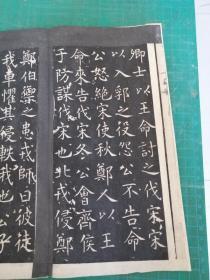 卿士以王命討之伐宋宋
以入郛之役怨公不告命
公怒絕宋使秋鄭人以王
命來告伐宋冬公會齊侯
于防謀伐宋也北戎侵鄭
鄭伯禦之患戎師曰彼徒
我車懼其侵軼我也公子